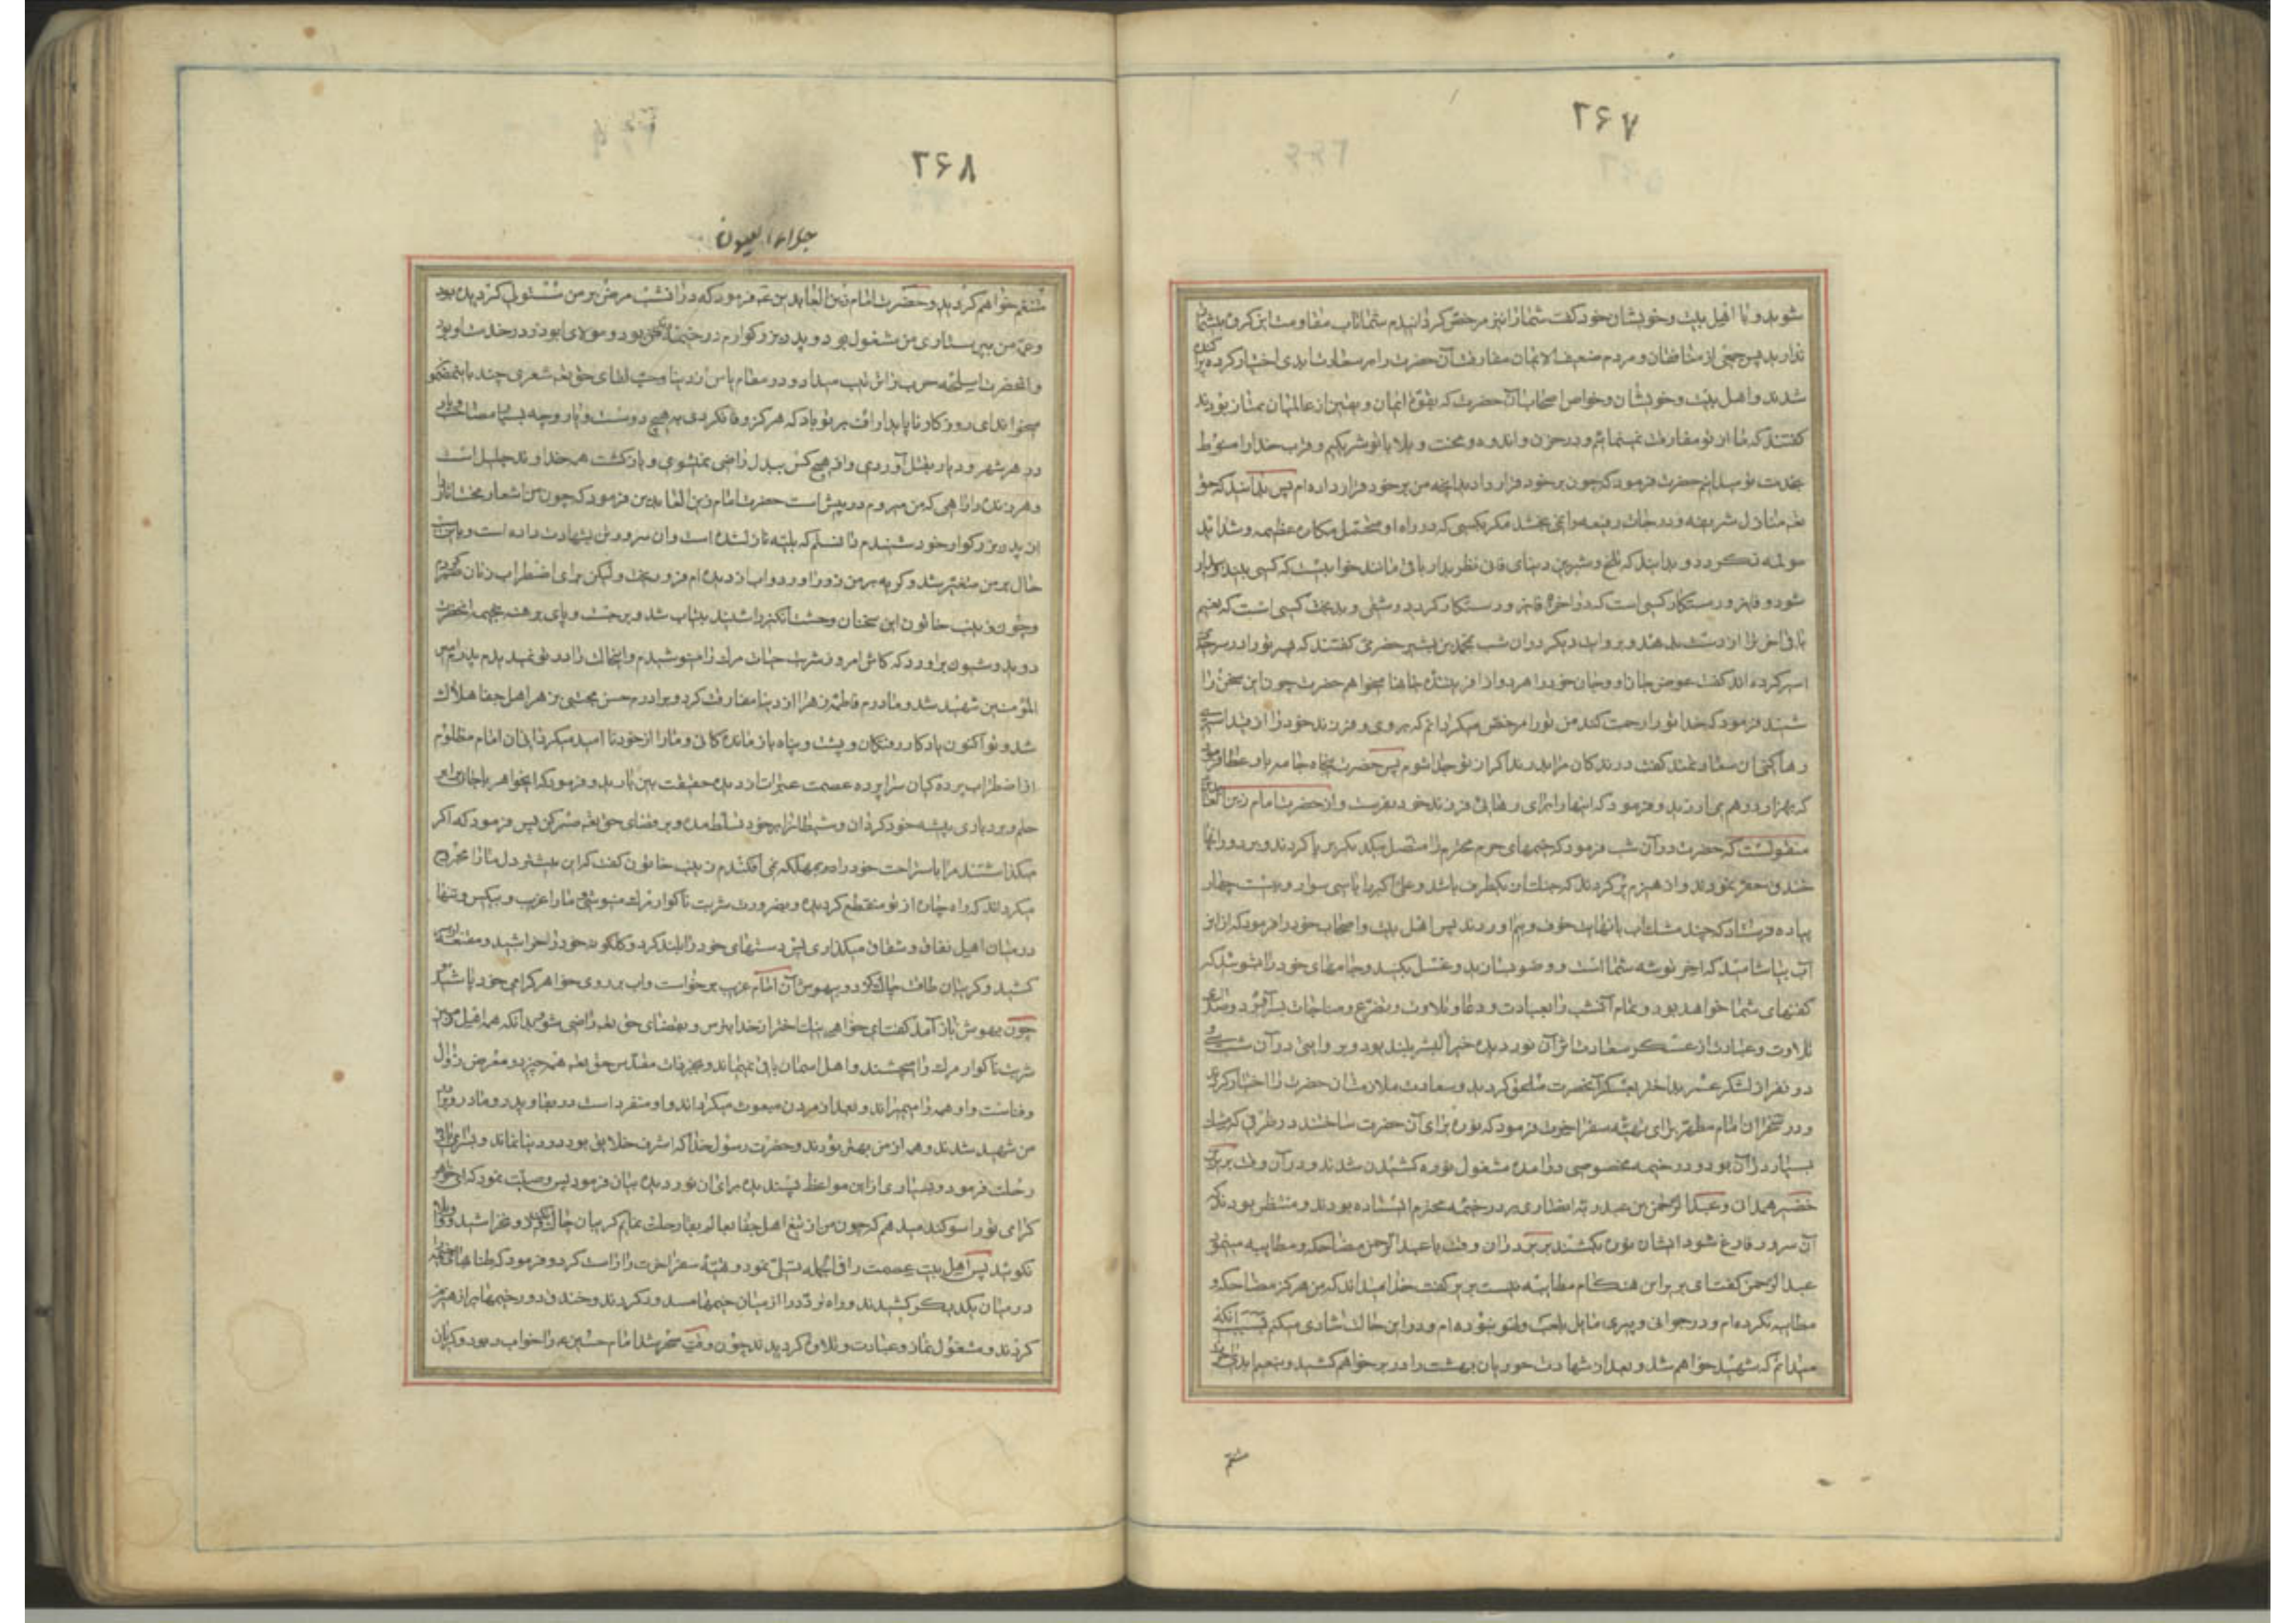 ۲۶۷
شوید و با اهل بیت و خویشان خود گفت شما را نیز مرخص گردانیدم شما تاب مقاومت این گروه
ندارید پس جمعی از منافقان و مردم ضعیف الایمان مفارقت آن حضرت را بر سعادت ابدی اختیار کرده
شدند و اهل بیت و خویشان و خواص اصحاب آن حضرت که بقوة ایمان و یقین از عالمیان ممتاز بودند
گفتند که ما از تو مفارقت نمینمائیم و در حزن و اندوه و محنت و بلا با تو شریکیم و قرب خدا را منوط
بخدمت تو میدانیم حضرت فرمود که چون بر خود قرار دادید آنچه من بر خود قرار داده ام پس بدانید که حق
تعه منازل شریفه و درجات رفیعه را نمی بخشد مگر بکسی که در راه او متحمل مکاره عظیمه و شداید
مولمه گردد و بدانید که تلخ و شیرین دنیای فانی نظر بدار باقی مانند خوابیست که کسی بیند و بیدار
شود و فایز و رستگار کسی است که در آخرة فایز و رستگار گردد و شقی و بدبخت کسی است که نعیم
باقی آخرة را از دست بدهد و بروایت دیگر در آن شب محمد بن بشیر حضرمی گفتند که پسر تو را در سرحد
اسیر کرده اند گفت عوض جان او و جان خود را هر دو از آفریننده جانها میخواهم حضرت چون این سخن را
شنید فرمود که خدا تو را رحمت کند من تو را مرخص میگردانم که بروی و فرزند خود را از قید اسیری
رها کنی آن سعادتمند گفت درندگان مرا بدرند اگر از تو جدا شوم پس حضرت پنجاه جامه باو عطا
که بهزار درهم می ارزید و فرمود که اینها را برای رهائی فرزند خود بفرست و از حضرت امام زین العابدین
منقولست که حضرت در آن شب فرمود که خیمهای حرم محترم را متصل بیکدیگر برپا کردند و بر دور آنها
خندق حفر نمودند و از هیزم پر کردند که جنگ از یکطرف باشد و علی اکبر را با سی سوار و بیست
پیاده فرستاد که چند مشک آب با نهایت خوف و بیم آوردند پس اهل بیت و اصحاب خود را فرمود که از این
آب بیاشامید که آخر توشه شما است و وضو بسازید و غسل بکنید و جامهای خود را بشوئید که
کفنهای شما خواهد بود و تمام آن شب را بعبادت و دعا و تلاوت و تضرع و مناجات بسر آورد و صدای
تلاوت و عبادت از عسکر سعادت اثر آن نور دیده خیر البشر بلند بود و بروایتی در آن شب سی
دو نفر از لشکر عمر بد اختر بعسکر آنحضرت ملحق گردید و سعادت ملازمت آن حضرت را اختیار کردند
و در سحر آن امام مطهر برای تهیه سفر آخرت فرمود که نوره برای آن حضرت ساختند در ظرفی که مشک
بسیار در آن بود و در خیمه مخصوصی در آمده مشغول نوره کشیدن شدند و در آن وقت بریر بن
خضیر همدانی و عبدالرحمن بن عبد ربه انصاری بر در خیمه محترم ایستاده بودند و منتظر بودند که
آن سرور فارغ شود ایشان نوره بکشند بریر در آن وقت با عبدالرحمن مضاحکه و مطایبه مینمود
عبدالرحمن گفت ای بریر این هنگام مطایبه نیست بریر گفت خدا میداند که من هرگز مضاحکه و
مطایبه نکرده ام و در جوانی و پیری مایل بلعب و لهو نبوده ام و در این حال شادی میکنم بسبب آنکه
میدانم که شهید خواهم شد و بعد از شهادت حوریان بهشت را در بر خواهم کشید و بنعیم ابدی
متنعم
۲۶۸
جلاء العیون
متنعم خواهم گردید و حضرت امام زین العابدین عه فرمود که در آن شب مرض بر من مستولی گردیده بود
و عمه من به پرستاری من مشغول بود و پدر بزرگوارم در خیمه بود و مولای ابوذر در خدمت او بود
و آنحضرت اسلحه حرب را ترتیب میداد و در مقام یأس از دنیا و حب لقای حق تعه شعری چند باین مضمون
میخواند ای روزگار ناپایدار اف بر تو باد که هرگز وفا نکردی به هیچ دوست و یار و چه بسیار مصاحب
در هر شهر و دیار بقتل آوردی و از هیچ کس ببدل راضی نمیشوی و بازگشت همه خداوند جلیل است
و هر زنده را راهی که من میروم در پیش است حضرت امام زین العابدین فرمود که چون من این اشعار محنت آثار را
از پدر بزرگوار خود شنیدم دانستم که بلیه نازل شده است و آن سرور تن بشهادت داده است و باین سبب
حال بر من متغیر شد و گریه بر من زور آورد و آب از دیده ام فرو ریخت ولیکن برای اضطراب زنان صبر کردم
و چون زینب خاتون این سخنان وحشت انگیز را شنید بیتاب شد و برجست و پای برهنه بخیمه آنحضرت
دوید و شیون برآورد که کاش امروز شربت مرگ را مینوشیدم و این حال را در تو نمیدیدم پدرم امیر
المؤمنین شهید شد و مادرم فاطمه زهرا از دنیا مفارقت کرد و برادرم حسن مجتبی بزهر اهل جفا هلاک
شد و تو اکنون یادگار رفتگان و پشت و پناه بازماندگانی و ما را از خود نا امید میگردانی آن امام مظلوم
از اضطراب پرده گیان سراپرده عصمت عبرات از دیده حقیقت بین بارید و فرمود که ای خواهر با جان برابر
حلم و بردباری پیشه خود گردان و شیطان را بر خود تسلط مده و بر قضای حق تعه صبر کن پس فرمود که اگر
میگذاشتند مرا باستراحت خود را در مهلکه نمی افکندم زینب خاتون گفت که این بیشتر دل ما را مجروح
میگرداند که راه چاره از تو منقطع گردیده و بضرورت شربت ناگوار مرگ مینوشی و ما را غریب و بیکس و تنها
در میان اهل نفاق و شقاق میگذاری پس دستهای خود را بلند کرد و گلگونه خود را خراشید و مقنعه از سر
کشید و گریبان طاقت چاک کرد و بیهوش آن امام غریب برخواست و آب بر روی خواهر گرامی خود پاشید
چون بهوش باز آمد گفت ای خواهر نیک اختر از خدا بترس و بقضای حق تعه راضی شو بدانکه همه اهل زمین
شربت ناگوار مرگ را میچشند و اهل آسمان باقی نمیمانند و بجز ذات مقدس حق تعه همه چیز در معرض زوال
و فناست و او همه را میمیراند و بعد از مردن مبعوث میگرداند و او منفرد است در بقا و پدر و مادر و برادر
من شهید شدند و همه از من بهتر بودند و حضرت رسول خدا که اشرف خلایق بود در دنیا نماند و بسرای باقی
رحلت فرمود و بسیاری از این مواعظ پسندیده برای آن نور دیده بیان فرمود پس وصیت نمود که ای خواهر
گرامی تو را سوگند میدهم که چون من از تیغ اهل جفا بعالم بقا رحلت نمایم گریبان چاک مکنید و رو مخراشید و واویلا
نگوئید پس اهل بیت عصمت را فی الجمله تسلی نمود و تهیه سفر آخرت را راست کرد و فرمود که طنابهای خیمه
در میان یکدیگر کشیدند و راه تردد را از میان خیمها مسدود کردند و خندق دور خیمها پر از هیزم
کردند و مشغول نماز و عبادت و تلاوة گردیدند چون وقت سحر شد امام حسین عه را خواب ربود و گریان